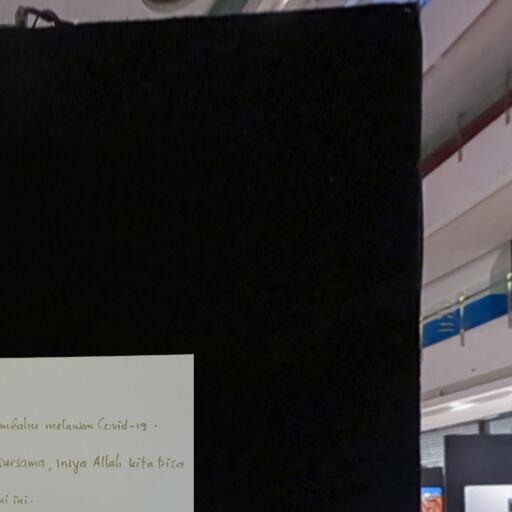 melawan Covid-19.
bersama, insya Allah kita bisa
ini.